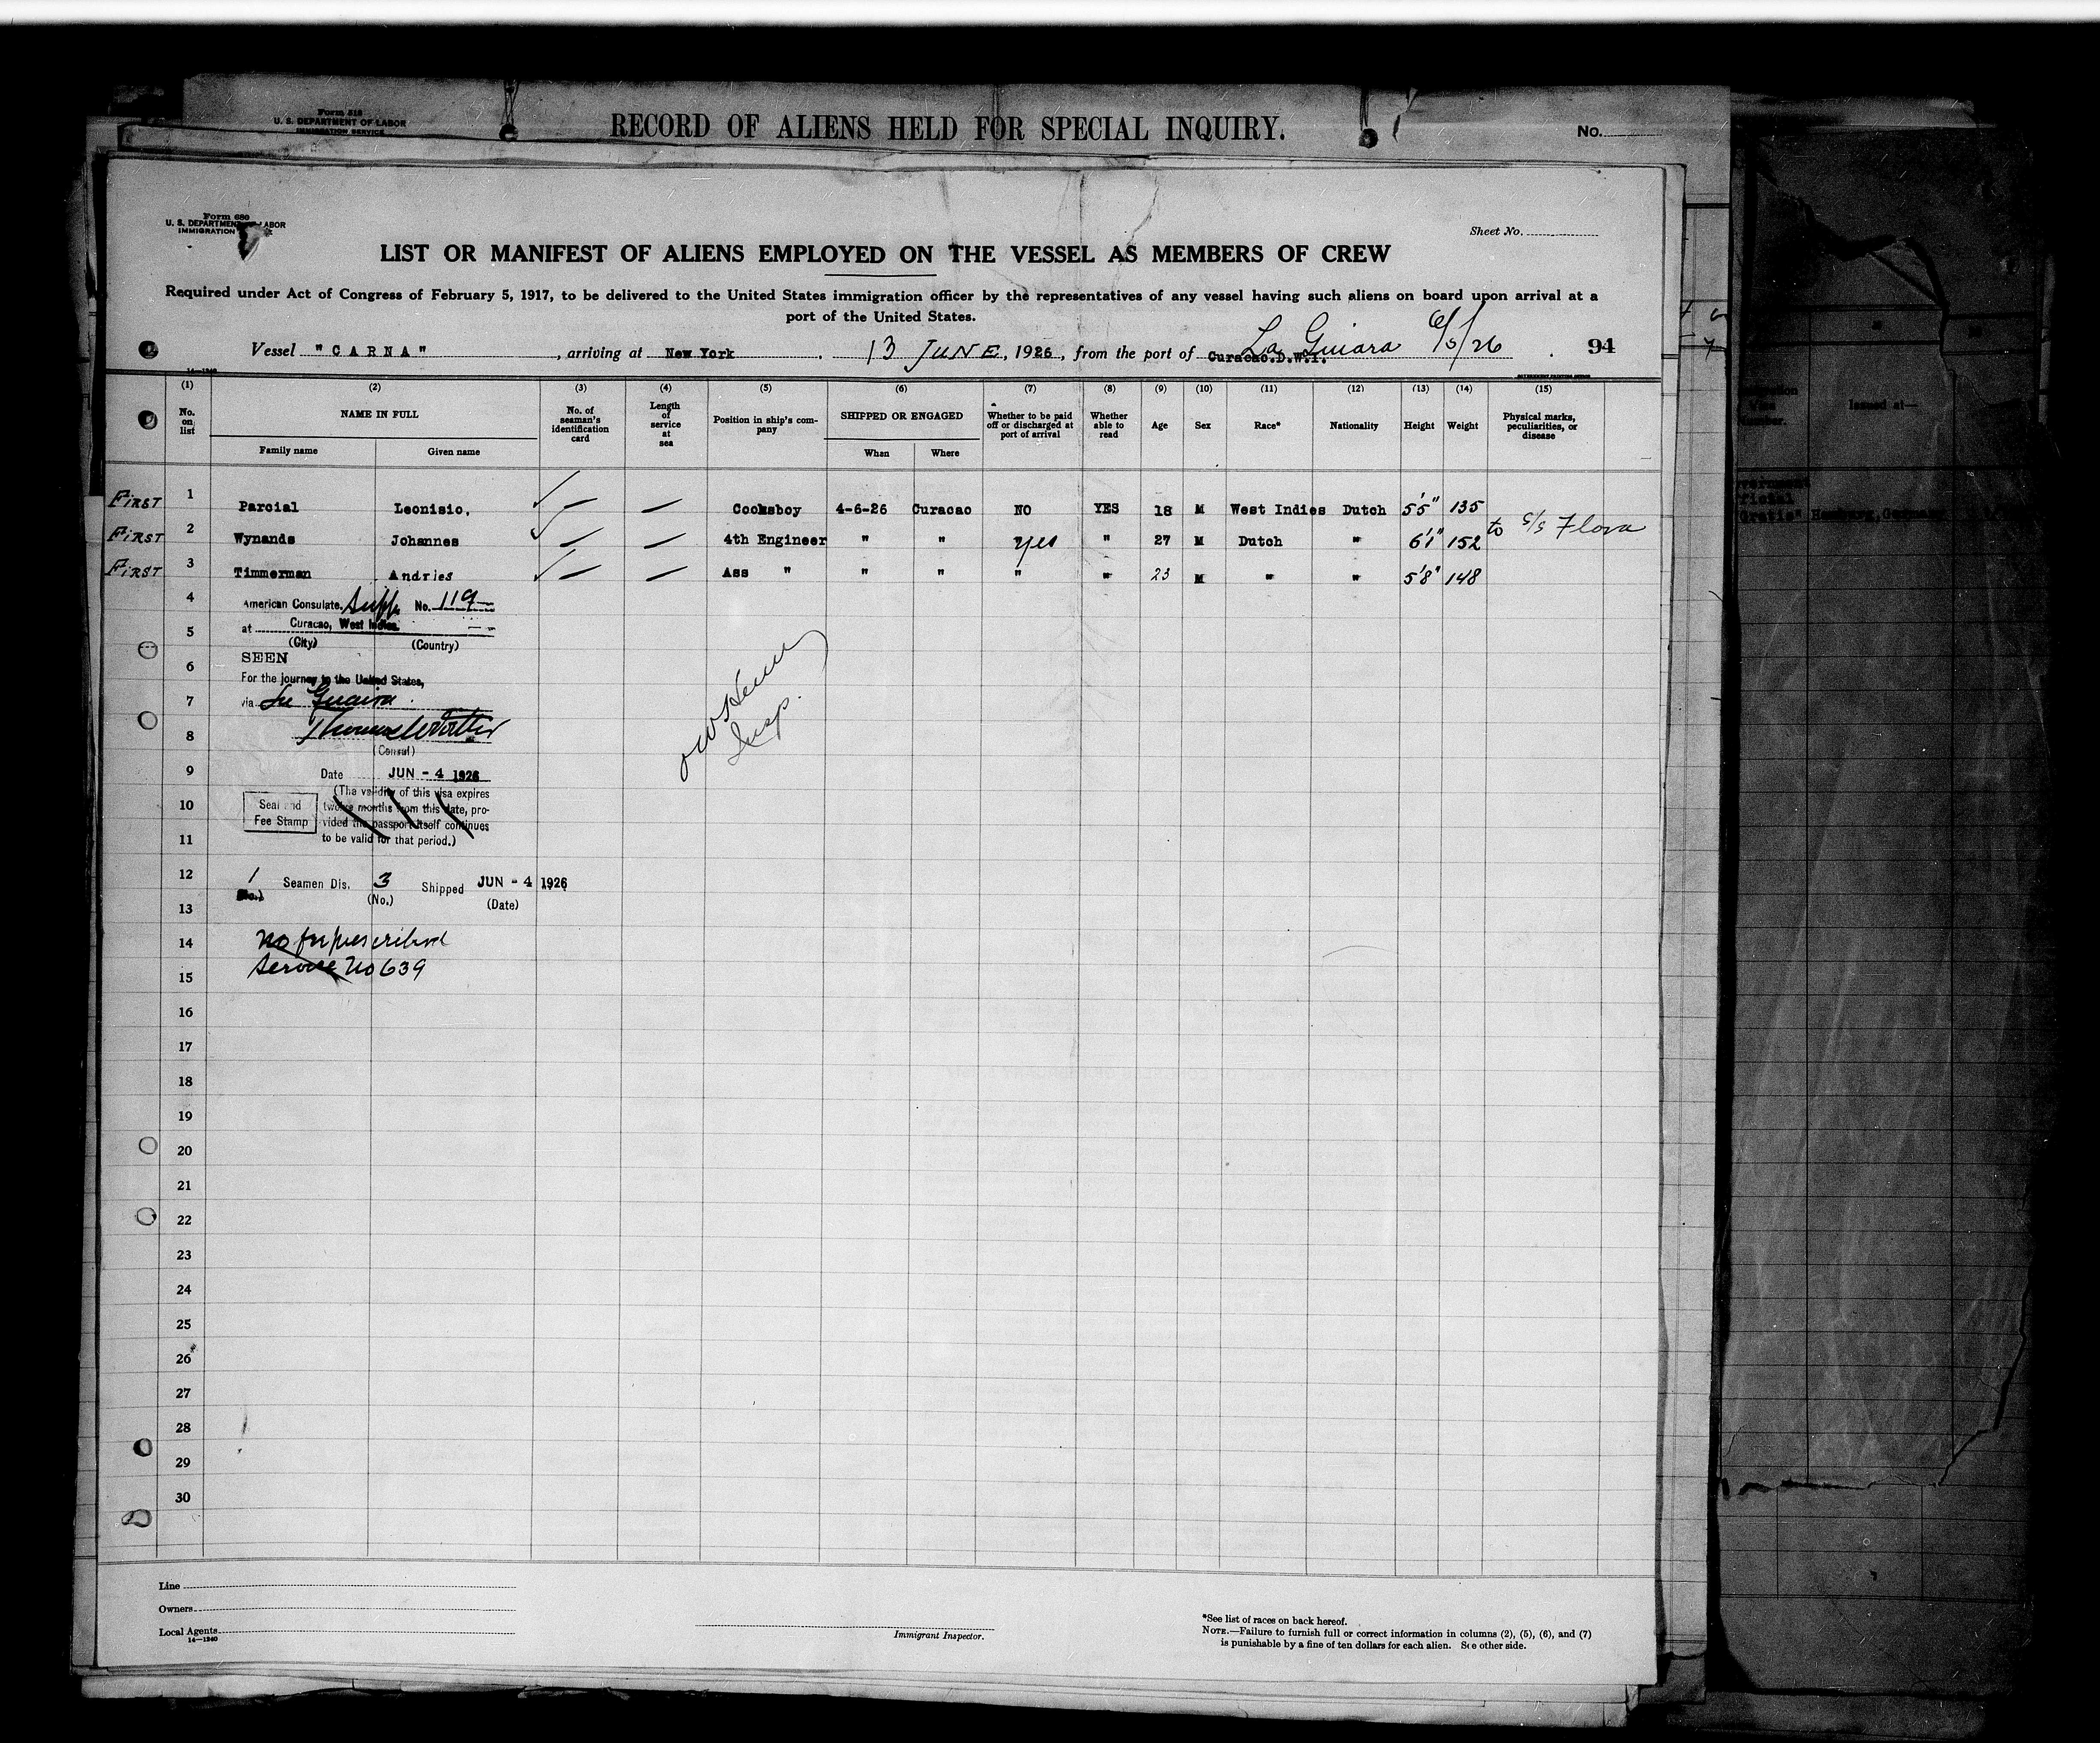 Form 518
U. S. DEPARTMENT OF LABOR
IMMIGRATION SERVICE
RECORD OF ALIENS HELD FOR SPECIAL INQUIRY.
No.
Form 680
U. S. DEPARTMENT OF LABOR
IMMIGRATION
Sheet No.
LIST OR MANIFEST OF ALIENS EMPLOYED ON THE VESSEL AS MEMBERS OF CREW
Required under Act of Congress of February 5, 1917, to be delivered to the United States immigration officer by the representatives of any vessel having such aliens on board upon arrival at a
port of the United States.
Vessel "CARNA", arriving at New York. 13 JUNE, 1926, from the port of Curacao.D.W.I. La Guiara 6/5/26 94
14—1240
GOVERNMENT PRINTING OFFICE
(1) (2) (3) (4) (5) (6) (7) (8) (9) (10) (11) (12) (13) (14) (15)
No. on list
NAME IN FULL
Family name
Given name
No. of seaman's identification card
Length of service at sea
Position in ship's company
SHIPPED OR ENGAGED
When
Where
Whether to be paid off or discharged at port of arrival
Whether able to read
Age
Sex
Race*
Nationality
Height
Weight
Physical marks, peculiarities, or disease
FIRST 1 Parcial Leonisio, — — Cooksboy 4-6-26 Curacao NO YES 18 M West Indies Dutch 5'5" 135
FIRST 2 Wynands Johannes — — 4th Engineer " " yes " 27 M Dutch " 6'1" 152 to s/s Flora
FIRST 3 Timmerman Andries — — Ass " " " " " 23 M " " 5'8" 148
4
American Consulate. No. 119
5
at Curacao, West Indies.
(City) (Country)
6
SEEN
For the journey to the United States,
7
via La Guaira
8
(Consul)
9
Date JUN - 4 1926
(The validity of this visa expires
10
Seal and
Fee Stamp
twelve months from this date, pro-
vided the passport itself continues
11
to be valid for that period.)
12
1 Seamen Dis. 3 Shipped JUN - 4 1926
(No.) (No.) (Date)
13
14
No fee prescribed
15
Service No 639
Insp.
16
17
18
19
20
21
22
23
24
25
26
27
28
29
30
Line
Owners
Local Agents
14—1240
Immigrant Inspector.
*See list of races on back hereof.
NOTE.—Failure to furnish full or correct information in columns (2), (5), (6), and (7)
is punishable by a fine of ten dollars for each alien. See other side.
Issued at—